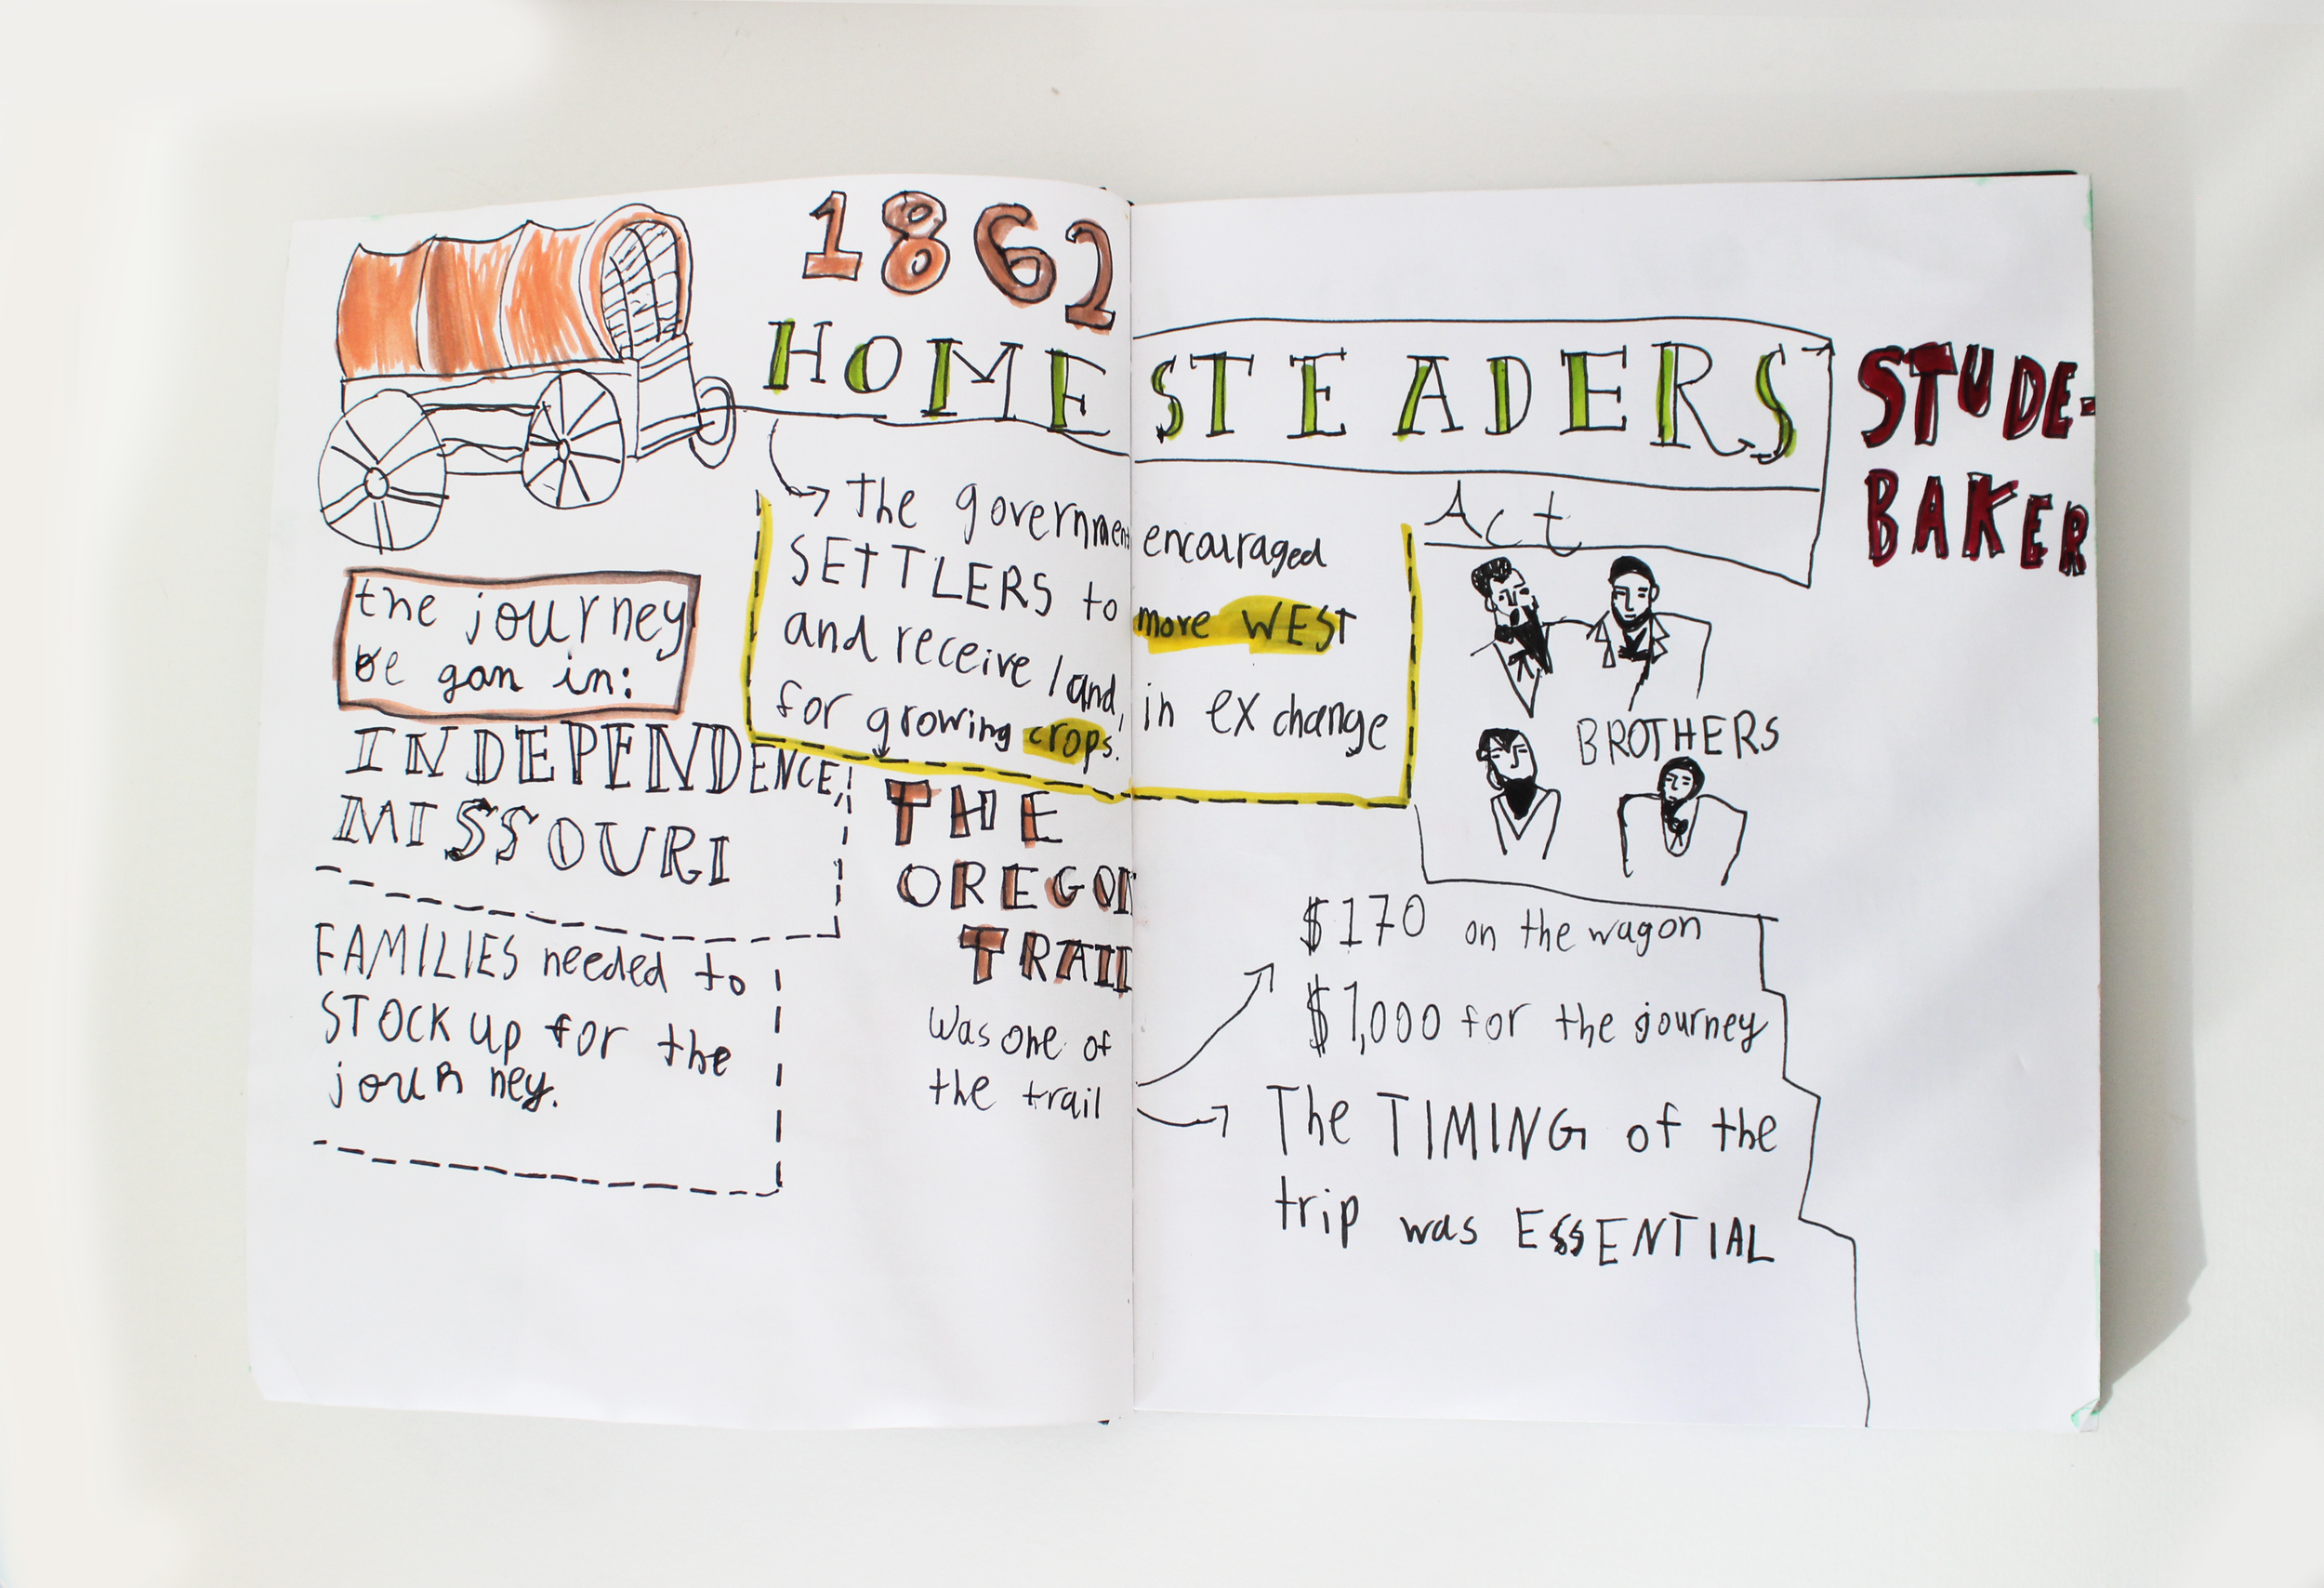 1862
HOMESTEADERS
Act
STUDE-
BAKER
→ the government encouraged
SETTLERS to more WEST
and receive land, in exchange
for growing crops.
the journey
be gan in:
INDEPENDENCE,
MISSOURI
FAMILIES needed to
STOCK up for the
journey.
THE
OREGON
TRAIL
was one of
the trail
BROTHERS
$170 on the wagon
$1,000 for the journey
The TIMING of the
trip was ESSENTIAL